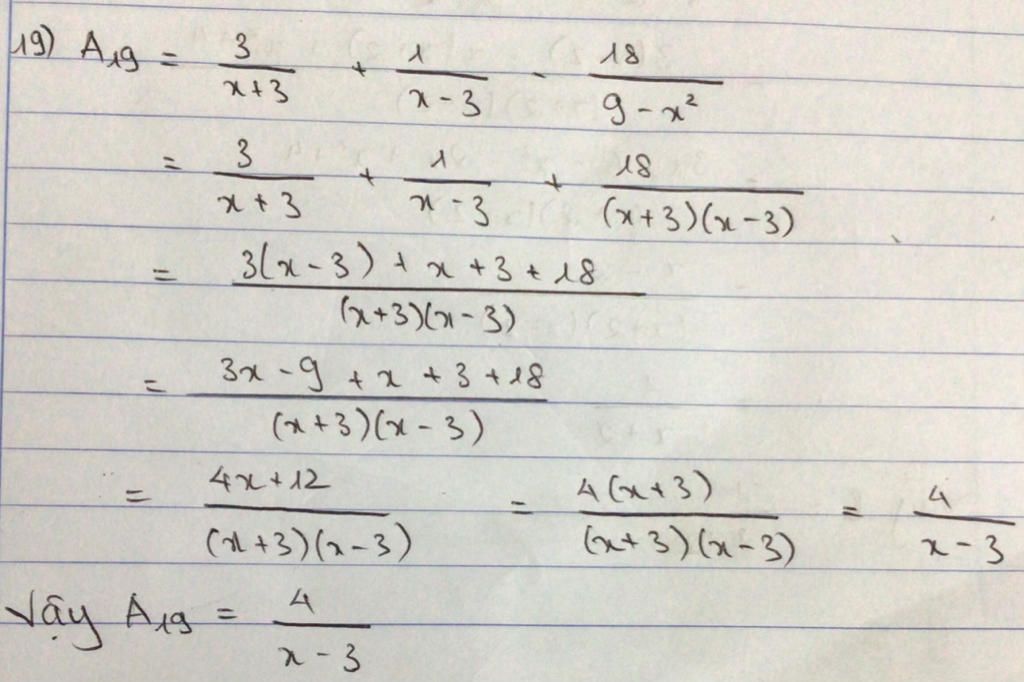 19) A₁₉ = 3/(x+3) + 1/(x-3) - 18/(9-x²)
= 3/(x+3) + 1/(x-3) + 18/((x+3)(x-3))
= (3(x-3)+x+3+18)/((x+3)(x-3))
= (3x-9+x+3+18)/((x+3)(x-3))
= (4x+12)/((x+3)(x-3)) = 4(x+3)/((x+3)(x-3)) = 4/(x-3)
Vậy A₁₉ = 4/(x-3)